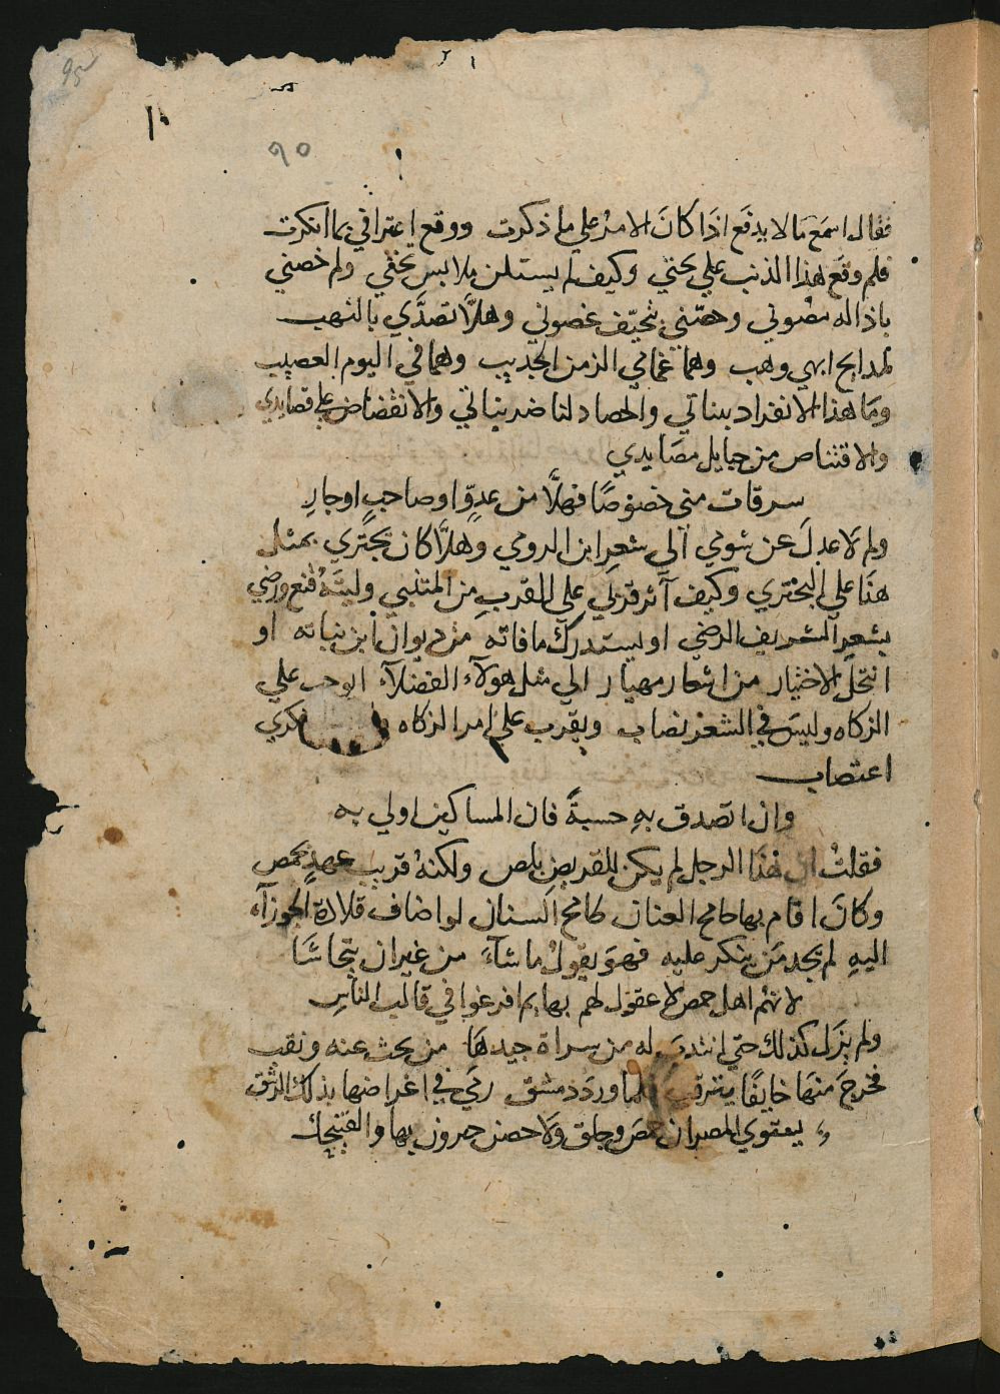 ٩٥
فقال اسمع ما لا يدفع اذا كان الامر علي ما ذكرت ووقع اعترافي بما انكرت
فلم وقع هذا الذنب علي بختي وكيف لم يستلن ملابس تختي ولم خصني
باذاله مصوني وحصني بتحيف غصوني وهلا تصدي بالنهب
لمدايح ابني وهب وهما غمامي الزمن الجديب وهما في اليوم العصيب
وما هذا الانفراد ببناتي والحصاد لناضر نباتي والانقضاض علي قصايدي
والاقتناص من حبايل مصايدي
سرقات مني خصوصًا فهلا من عدوٍّ او صاحبٍ او جارِ
ولم لا عدل عن شومي الي شعر ابن الرومي وهلا كان يجتري بمثل
هذا علي البحتري وكيف آثر قربي علي القرب من المتنبي وليته قنع ورضي
بشعر الشريف الرضي او يستدرك ما فاته من ديوان ابن نباته او
انتحل الاختيار من اشعار مهيار الي مثل هولآء الفضلآء ا يوجب علي
الزكاه وليس في الشعر نصاب ويقرب علي امر الزكاه فكري
اغتصاب
وان اتصدق بهِ حسبةً فان المساكين اولي به
فقلت ان هذا الرجل لم يكن للقريض بلص ولكنه قريب عهدٍ بحمص
وكان اقام بها جامح العنان طامح السنان لو اضاف قلادة الجوزآء
اليهِ لم يجد من ينكر عليه فهو يقول ما شآء من غير ان يتحاشا
لانهم اهل حمص لا عقول لهم بهايم افرغوا في قالب الناسِ
ولم يزل كذلك حتي انتدب له من سراة جيدها من بحث عنه ونقب
فخرج منها خايفًا يترقب فلما ورد دمشق رمي في اغراضها بذلك الرشق
يعتوي المصران حمص وجلق ولا حصن جيرون بها والقنيجك